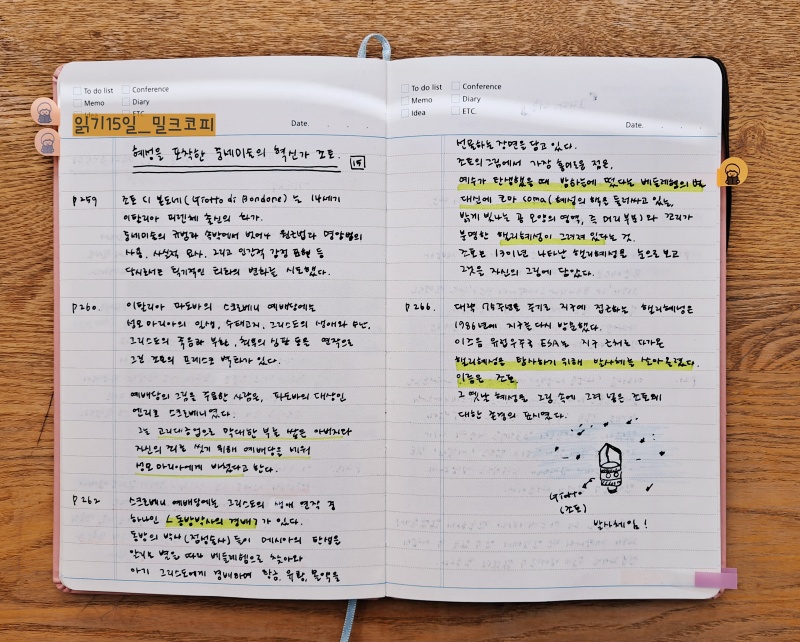 To do list
Conference
Memo
Diary
읽기15일_밀크코피
Date.
혜성을 포착한 중세미술의 혁신가 조토.
15
p259
조토 디 본도네(Giotto di Bondone)는 14세기
이탈리아 피렌체 출신의 화가.
중세미술의 규범과 속박에서 벗어나 원근법과 명암법의
사용, 사실적 묘사, 그리고 인간적 감정 표현 등
당시로서는 획기적인 회화의 변화를 시도했다.
p260.
이탈리아 파도바의 스크로베니 예배당에는
성모 마리아의 인생, 수태고지, 그리스도의 생애와 수난,
그리스도의 죽음과 부활, 최후의 심판 등을 연작으로
그린 조토의 프레스코 벽화가 있다.
예배당의 그림을 주문한 사람은, 파도바의 대상인
엔리코 스크로베니였다.
그는 고리대금업으로 막대한 부를 쌓은 아버지가
자신의 죄를 씻기 위해 예배당을 세워
성모 마리아에게 바쳤다고 한다.
p262
스크로베니 예배당에는 그리스도의 생애 연작 중
하나인 <동방박사의 경배>가 있다.
동방의 박사(점성술사)들이 메시아의 탄생을
알리는 별을 따라 베들레헴으로 찾아와
아기 그리스도에게 경배하며 황금, 유향, 몰약을
To do list
Conference
Memo
Diary
Idea
ETC.
Date.
선물하는 장면을 담고 있다.
조토의 그림에서 가장 흥미로운 점은,
예수가 탄생했을 때 밤하늘에 떴다는 베들레헴의 별
대신에 코마 coma(혜성의 핵을 둘러싸고 있는,
밝게 빛나는 공 모양의 영역, 즉 머리부분)와 꼬리가
분명한 핼리혜성이 그려져 있다는 것.
조토는 1301년 나타난 핼리혜성을 눈으로 보고
그것을 자신의 그림에 담았다.
p266.
대략 75주년을 주기로 지구에 접근하는 핼리혜성은
1986년에 지구를 다시 방문했다.
이즈음 유럽우주국 ESA는 지구 근처로 다가온
핼리혜성을 탐사하기 위해 탐사체를 쏘아올렸다.
이름은 조토.
그 옛날 혜성을 그림 속에 그려 넣은 조토에
대한 존경의 표시였다.
Giotto
(조토)
탐사체임!